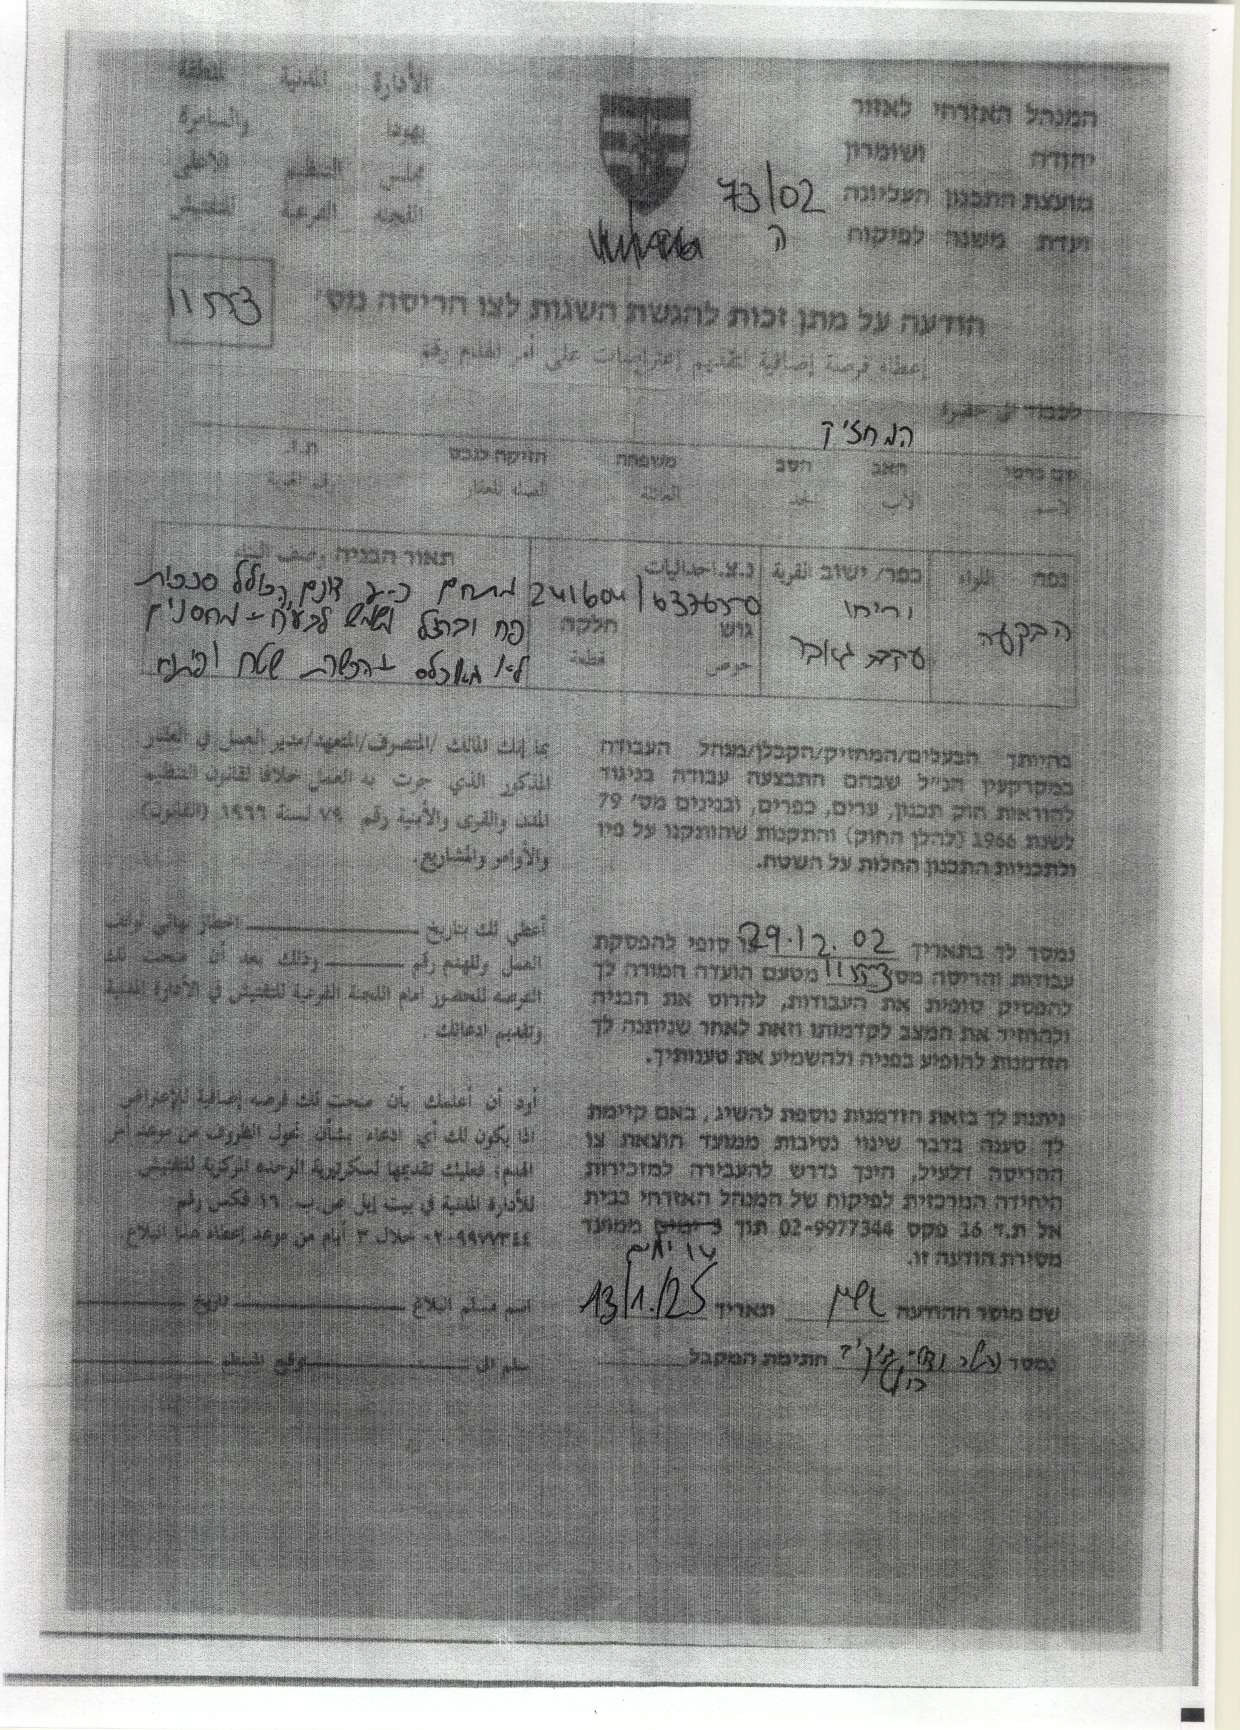 המנהל האזרחי לאזור
יהודה ושומרון
מועצת התכנון העליונה
ועדת משנה לפיקוח
الأدارة المدنية لمنطقة
يهودا والسامرة
مجلس التنظيم الأعلى
اللجنة الفرعية للتفتيش
73/02
ה
הודעה על מתן זכות להגשת השגות לצו הריסה מס'
إعطاء فرصة إضافية لتقديم إعتراضات على أمر الهدم رقم
לכבוד الى حضرة
המחזיק
שם פרטי האב הסב משפחה הזיקה לנכס ת.ז.
الأسم الأب الجد العائلة الصلة للعقار رقم الهوية
נפה اللواء
הבקעה
כפר/ ישוב القرية
יריחו
עקבת ג'אבר
נ.צ. احداليات
241604/637650
גוש חלקה
حوض قطعة
תאור הבניה وصف البناء
מתחם כ-2 דונם הכולל סככות
פח וברזל
הכשרת שטח
בהיותך הבעלים/המחזיק/הקבלן/מנהל העבודה
במקרקעין הנ"ל שבהם התבצעה עבודה בניגוד
להוראות חוק תכנון, ערים, כפרים, ובנינים מס' 79
לשנת 1966 (להלן החוק) והתקנות שהותקנו על פיו
ולתכניות התכנון החלות על השטח.
بما إنك المالك /المتصرف/المتعهد/مدير العمل في العقار
المذكور الذي جرت به العمل خلافا لقانون التنظيم
المدن والقرى والأبنية رقم ٧٩ لسنة ١٩٦٦ (القانون)
والأوامر والمشاريع.
נמסר לך בתאריך 29.12.02 צו סופי להפסקת
עבודות והריסה מס' מטעם הועדה המורה לך
להפסיק סופית את העבודות, להרוס את הבניה
ולהחזיר את המצב לקדמותו וזאת לאחר שניתנה לך
הזדמנות להופיע בפניה ולהשמיע את טענותיך.
أعطي لك بتاريخ اخطار نهائي لوقف
العمل وللهدم رقم وذلك بعد أن منحت لك
الفرصه للحضور امام اللجنة الفرعية للتفتيش في الأدارة المدنية
وتقديم ادعائك .
ניתנת לך בזאת הזדמנות נוספת להשיג , באם קיימת
לך טענה בדבר שינוי נסיבות ממועד הוצאת צו
ההריסה דלעיל, הינך נדרש להעבירה למזכירות
היחידה המרכזית לפיקוח של המנהל האזרחי בבית
אל ת.ד 16 פקס 02-9977344 תוך 3 ימים ממועד
מסירת הודעה זו.
ימים
أود أن أعلمك بأن منحت لك فرصه إضافية للإعتراض
اذا يكون لك أي ادعاء بشأن تحول الظروف من موعد أمر
الهدم، فعليك تقديمها لسكرتيرية الوحدة المركزية للتفتيش
للأدارة المدنية في بيت إيل ص.ب ١٦ فكس رقم
٠٢-٩٩٧٧٣٤٤ خلال ٣ أيام من موعد إعطاء هذا البلاغ
שם מוסר ההודעה תאריך 13/1/25
اسم مسلم البلاغ تاريخ
נמסר חתימת המקבל
سلم الى توقيع المستلم